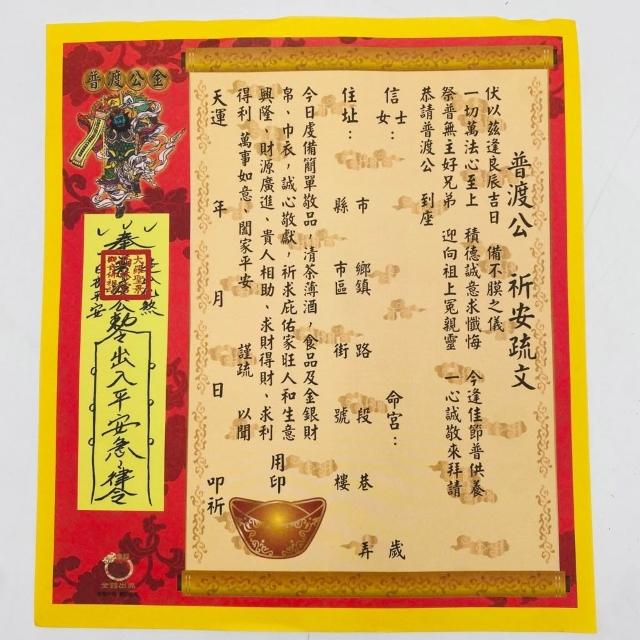 普渡公 祈安疏文
伏以茲逢良辰吉日 備不腆之儀 今逢佳節普供養
一切萬法心至上 積德誠意求懺悔 一心誠敬來拜請
祭普無主好兄弟 迎向祖上冤親靈
恭請普渡公 到座
信士女： 命宮： 歲
住址： 市縣 鄉鎮市區 路街 段號 巷樓 弄
今日虔備簡單敬品，清茶薄酒，食品及金銀財
帛、巾衣，誠心敬獻，祈求庇佑家旺人和生意
興隆、財源廣進、貴人相助、求財得財、求利
得利 萬事如意、闔家平安 謹疏 以聞
天運 年 月 日 叩祈
用印
普渡公金
奉普渡公勅令出入平安急急律令
日夜平安